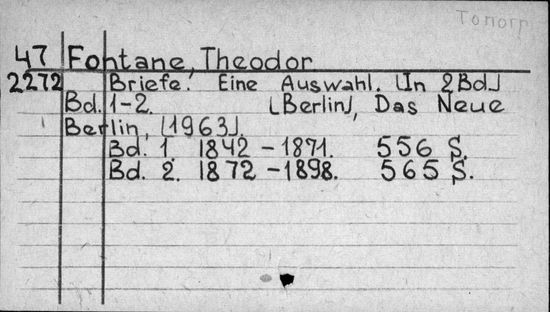 Топогр
47 Fontane, Theodor
2272 Briefe. Eine Auswahl. [In 2Bd.]
Bd. 1-2. [Berlin], Das Neue
Berlin, [1963].
Bd. 1. 1842-1871. 556 S.
Bd. 2. 1872-1898. 565 S.